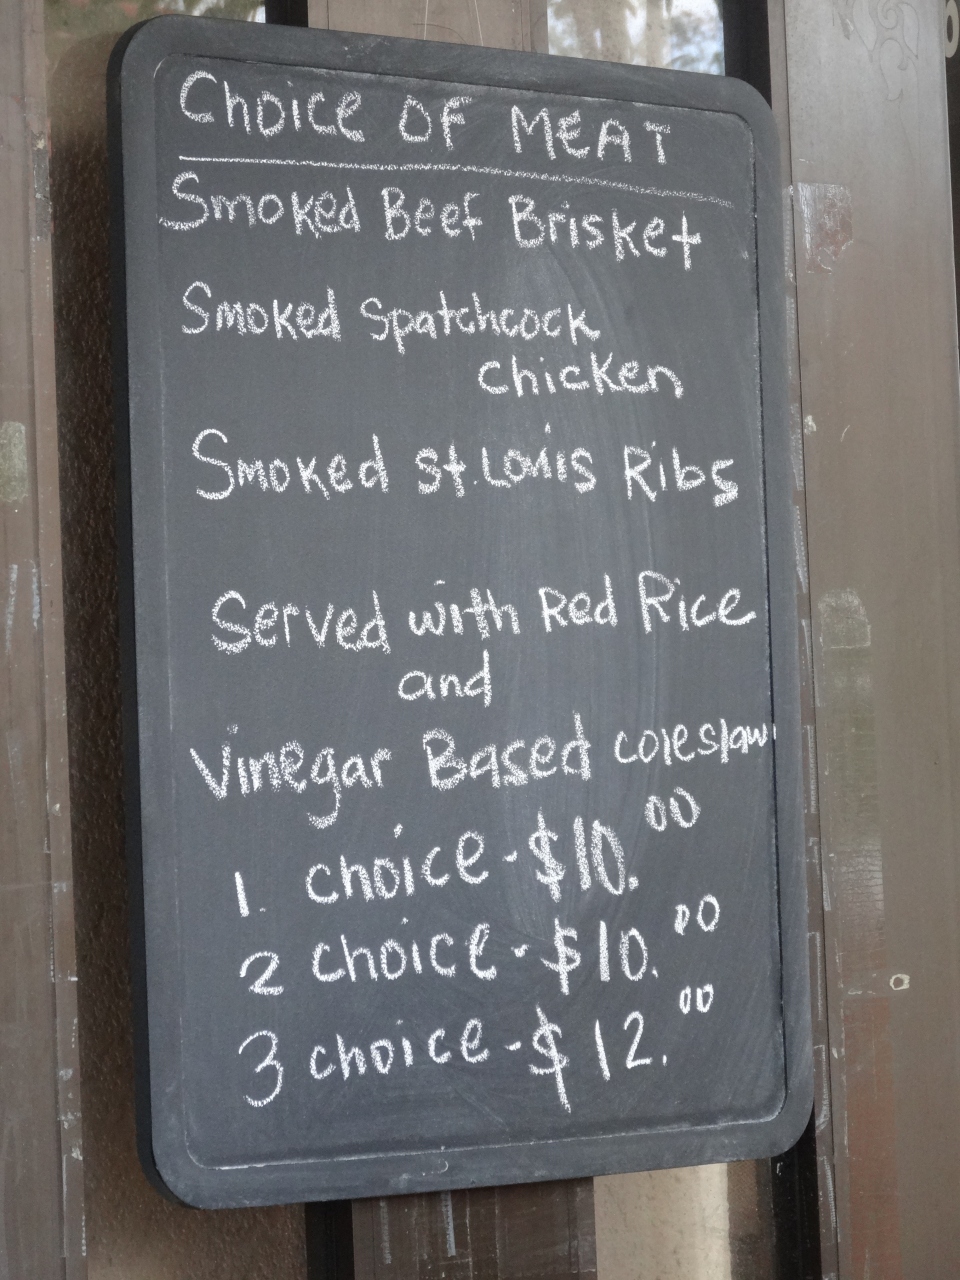 CHOICE OF MEAT
Smoked Beef Brisket
Smoked Spatchcock
chicken
Smoked St. Louis Ribs
Served with Red Rice
and
Vinegar Based coleslaw
1. choice - $10.00
2 choice - $10.00
3 choice - $12.00